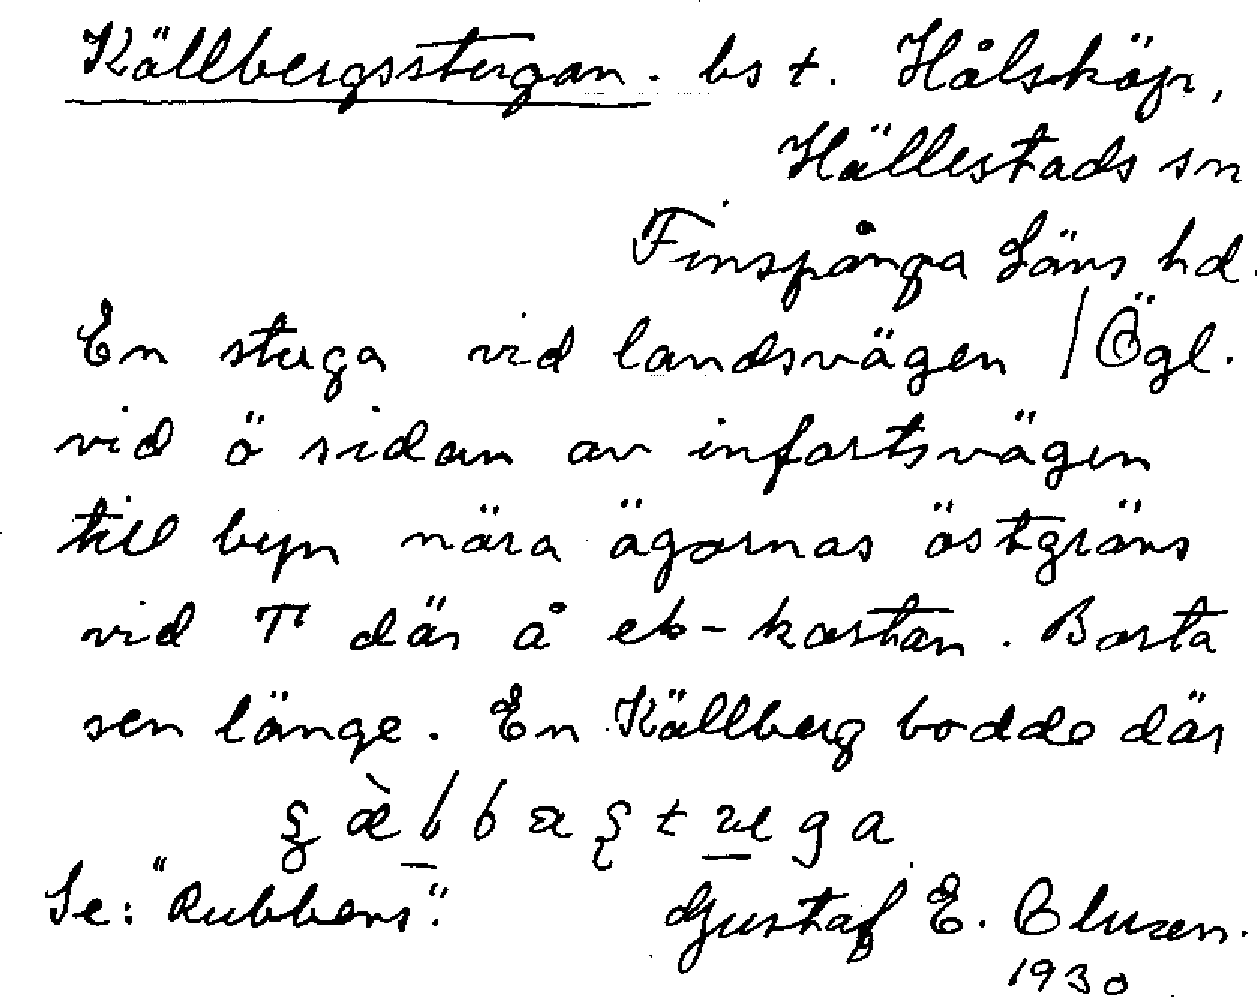 Källbergsstugan. bs t. Hålsköp,
Hällestads sn
Finspånga Läns hd.
En stuga vid landsvägen / Ögl.
vid ö sidan av infartsvägen
till byn nära ägornas östgräns
vid T där å ek-kartan. Borta
sen länge. En Källberg bodde där
Se: "Rubbens".
Gustaf E. Cluzen.
1930